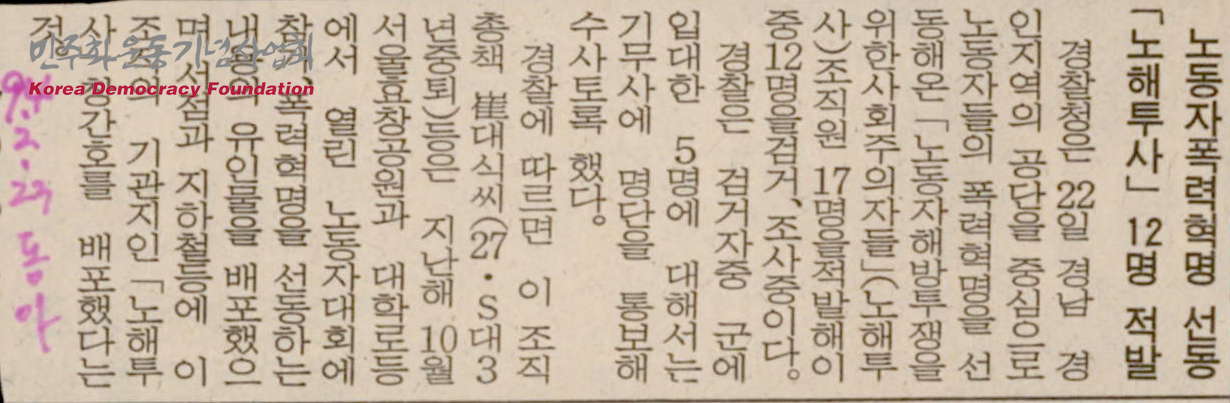 노동자폭력혁명 선동
「노해투사」 12명 적발
경찰청은 22일 경남 경
인지역의 공단을 중심으로
노동자들의 폭력혁명을 선
동해온 「노동자해방투쟁을
위한사회주의자들」(노해투
사)조직원 17명을적발해이
중12명을검거、조사중이다。
경찰은 검거자중 군에
입대한 5명에 대해서는
기무사에 명단을 통보해
수사토록 했다。
경찰에 따르면 이 조직
총책 崔대식씨(27·S대3
년중퇴)등은 지난해 10월
서울효창공원과 대학로등
에서 열린 노동자대회에
참가, 폭력혁명을 선동하는
내용의 유인물을 배포했으
며 서점과 지하철등에 이
조직의 기관지인 「노해투
사」창간호를 배포했다는
것
민주화운동기념사업회
Korea Democracy Foundation
94.2.23 동아